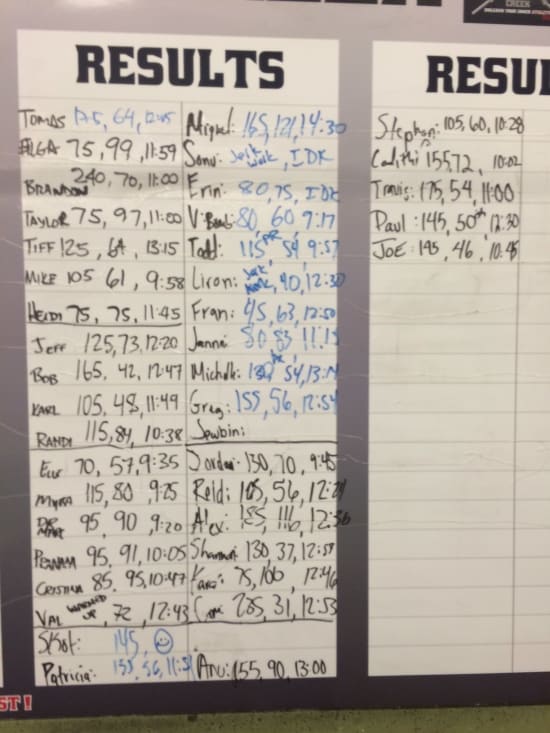 CREEK
RESULTS
TOMAS 125, 64, 12:05
OLGA 75, 99, 11:59
BRANDON 240, 70, 11:00
TAYLOR 75, 97, 11:00
TIFF 125, 64, 13:15
MIKE 105 61, 9:58
HEIDI 75, 75, 11:45
JEFF 125, 73, 12:20
BOB 165, 42, 12:47
KARL 105, 48, 11:49
RANDI 115, 84, 10:38
70, 57, 9:35
MYRA 115, 80, 9:25
95, 90, 9:20
95, 91, 10:05
CRISTINA 85, 95, 10:47
VAL WARMED UP, 72, 12:43
SKot: 145, ☺
Patricia: 135, 56, 11:51
Miguel: 165, 121, 14:30
Sonu: , IDK
Erin: 80, 75, IDK
80, 60 9:17
Todd: 115 PR, 54 9:57
Liron: , 40, 12:30
Fran: 45, 63, 12:50
80 83 11:15
54, 13:14
Greg: 155, 56, 12:54
Jewbin:
Jordan: 130, 70, 9:45
Reid: 105, 56, 12:21
Alex: 185, 116, 12:36
130, 37, 12:57
75, 100, 12:46
31, 12:53
Anu: 155, 90, 13:00
RESU
Stephani: 105, 60, 10:28
155, 72, 10:02
Travis: 175, 54, 11:00
Paul: 145, 50, 12:30
JOE: 145, 46, 10:45
ST!